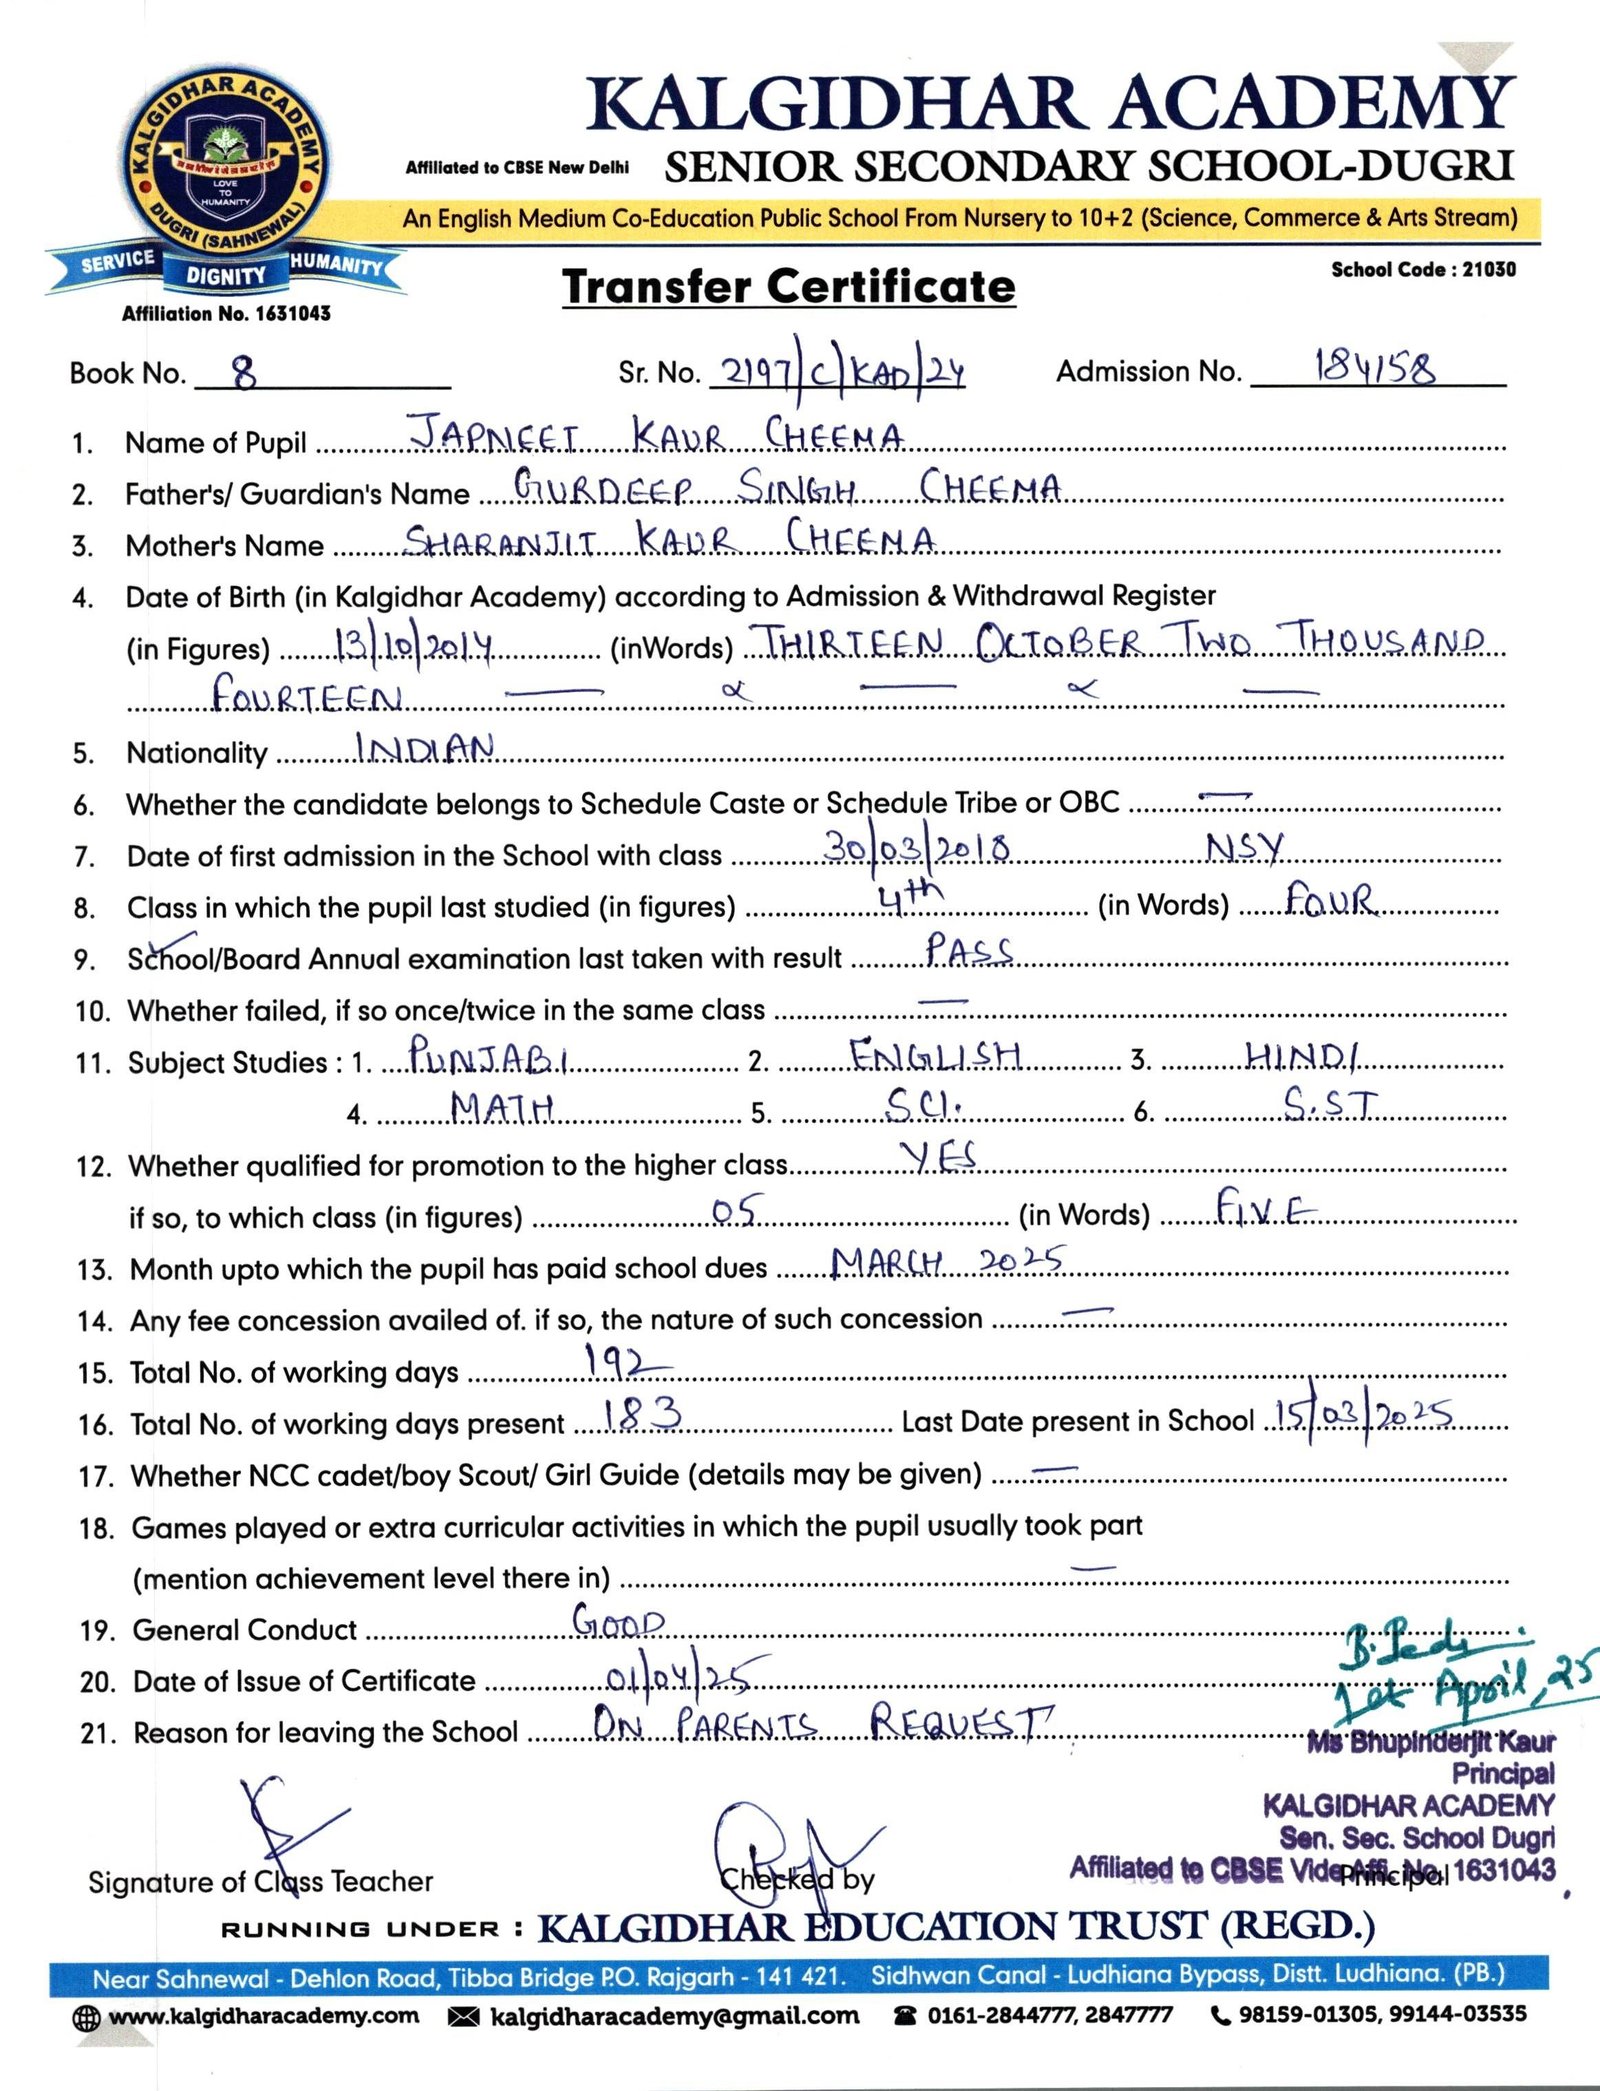 KALGIDHAR ACADEMY
DUGRI (SAHNEWAL)
LOVE
TO
HUMANITY
SERVICE DIGNITY HUMANITY
Affiliation No. 1631043
KALGIDHAR ACADEMY
Affiliated to CBSE New Delhi SENIOR SECONDARY SCHOOL-DUGRI
An English Medium Co-Education Public School From Nursery to 10+2 (Science, Commerce & Arts Stream)
School Code : 21030
Transfer Certificate
Book No. 8 Sr. No. 2197/C/KAD/24 Admission No. 184158
1. Name of Pupil JAPNEET KAUR CHEEMA
2. Father's/ Guardian's Name GURDEEP SINGH CHEEMA
3. Mother's Name SHARANJIT KAUR CHEEMA
4. Date of Birth (in Kalgidhar Academy) according to Admission & Withdrawal Register
(in Figures) 13/10/2014 (inWords) THIRTEEN OCTOBER TWO THOUSAND
FOURTEEN
5. Nationality INDIAN
6. Whether the candidate belongs to Schedule Caste or Schedule Tribe or OBC —
7. Date of first admission in the School with class 30/03/2018 NSY
8. Class in which the pupil last studied (in figures) 4th (in Words) FOUR
9. School/Board Annual examination last taken with result PASS
10. Whether failed, if so once/twice in the same class —
11. Subject Studies : 1. PUNJABI 2. ENGLISH 3. HINDI
4. MATH 5. SCI. 6. S.ST
12. Whether qualified for promotion to the higher class YES
if so, to which class (in figures) 05 (in Words) FIVE
13. Month upto which the pupil has paid school dues MARCH 2025
14. Any fee concession availed of. if so, the nature of such concession —
15. Total No. of working days 192
16. Total No. of working days present 183 Last Date present in School 15/03/2025
17. Whether NCC cadet/boy Scout/ Girl Guide (details may be given) —
18. Games played or extra curricular activities in which the pupil usually took part
(mention achievement level there in) —
19. General Conduct GOOD
20. Date of Issue of Certificate 01/04/25
1st April, 25
21. Reason for leaving the School ON PARENTS REQUEST
Ms Bhupinderjit Kaur
Principal
KALGIDHAR ACADEMY
Sen. Sec. School Dugri
Affiliated to CBSE Vide Affi. No. 1631043
Signature of Class Teacher Checked by Principal
RUNNING UNDER : KALGIDHAR EDUCATION TRUST (REGD.)
Near Sahnewal - Dehlon Road, Tibba Bridge P.O. Rajgarh - 141 421. Sidhwan Canal - Ludhiana Bypass, Distt. Ludhiana. (PB.)
www.kalgidharacademy.com kalgidharacademy@gmail.com 0161-2844777, 2847777 98159-01305, 99144-03535